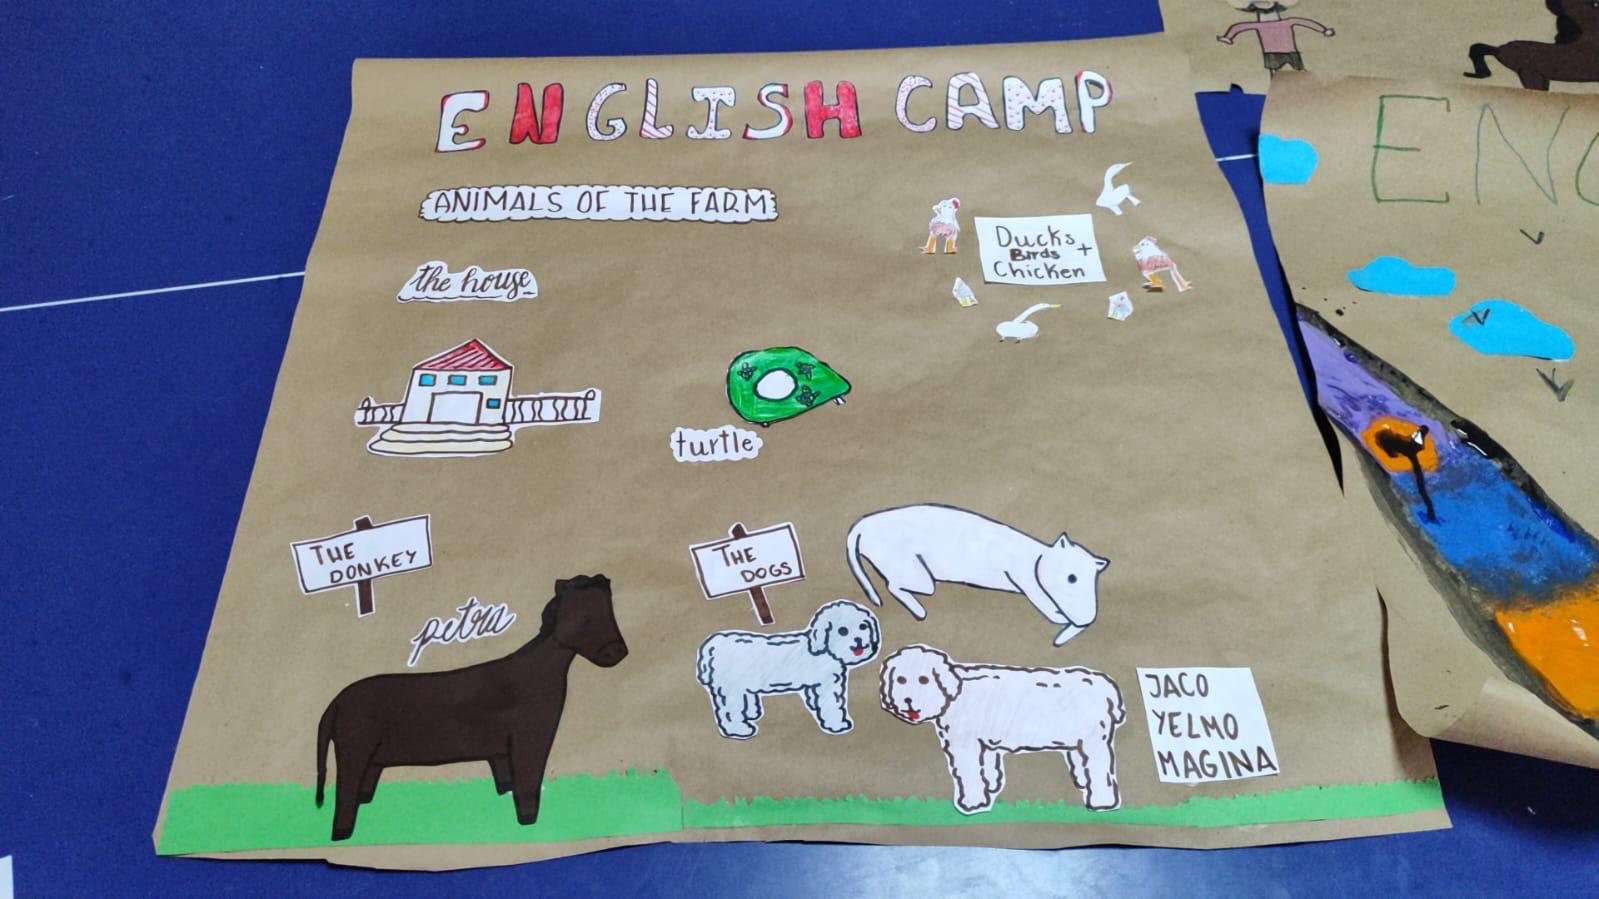 ENGLISH CAMP
ANIMALS OF THE FARM
the house
Ducks +
Birds
Chicken
turtle
THE
DONKEY
petra
THE
DOGS
JACO
YELMO
MAGINA
EN